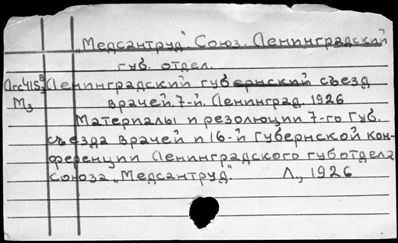 „Медсантруд”. Союз. Ленинградский
губ. отдел.
Ленинградский губернский съезд
врачей 7-й. Ленинград, 1926
М₃
Материалы и резолюции 7-го Губ.
съезда врачей и 16-й Губернской кон-
ференции Ленинградского губотдела
союза „Медсантруд.” Л., 1926